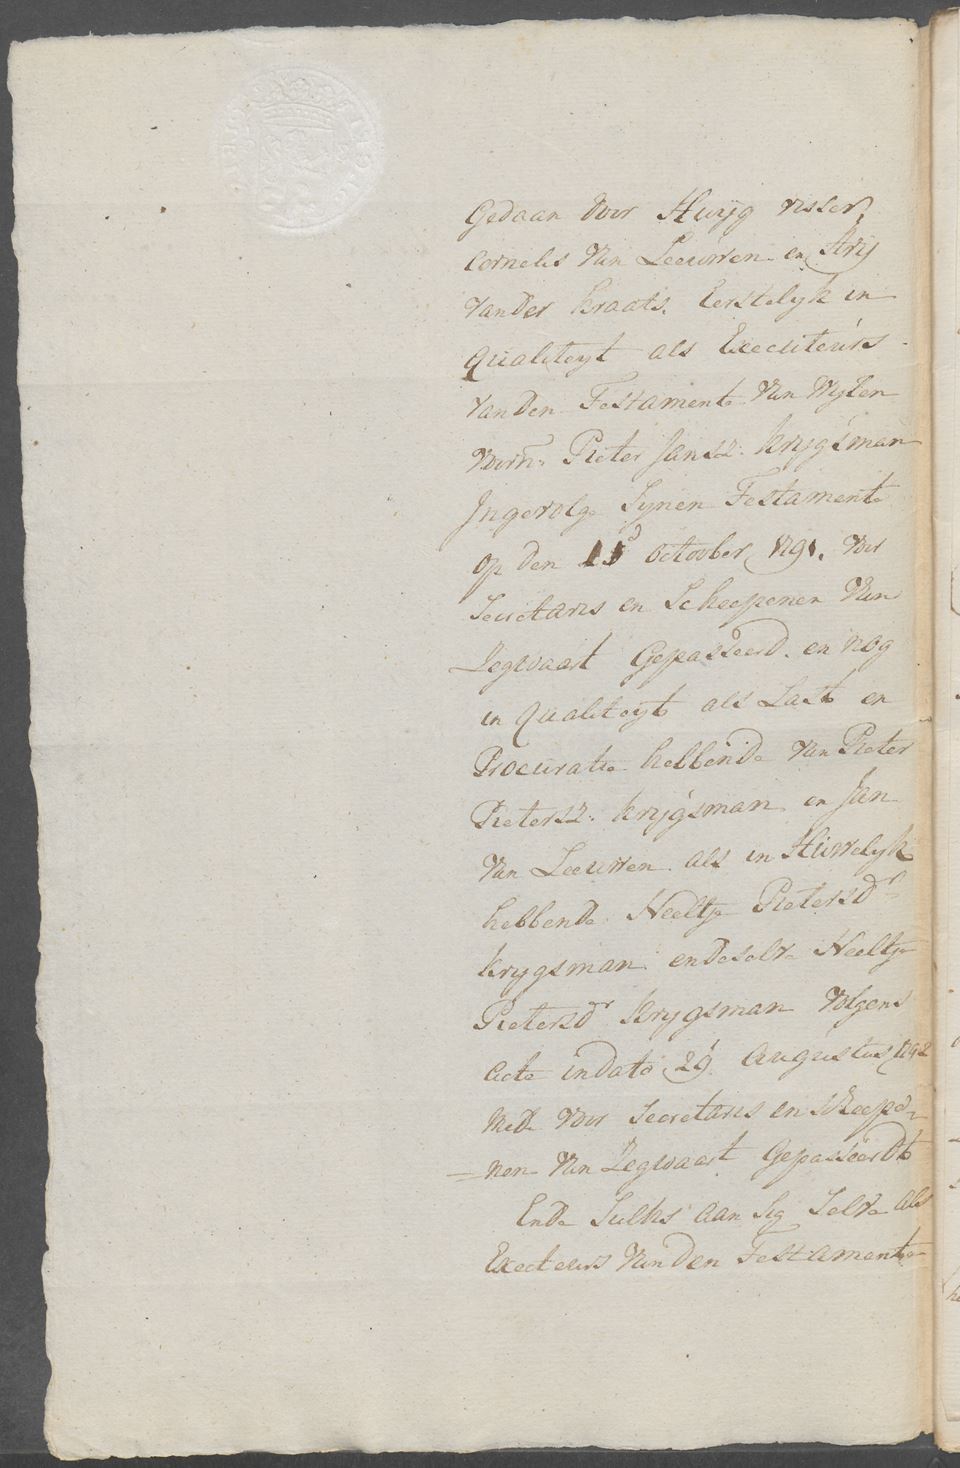 Gedaan door Huijg visser,
Cornelis Van Leeuwen en Arij
vander kraats. Eerstelijk in
Qualiteijt als Executeurs
van den Testamente Van Wijlen
voorn: Pieter Jansz: krijgsman
Ingevolge Sijnen Testamente
op den 15 october 1791. voor
Secretaris en Scheepenen Van
Zegwaart Gepasseerd. en nog
in Qualiteijt als Last en
Procuratie hebbende Van Pieter
Pietersz: krijgsman en Jan
Van Leeuwen als in Huwelijk
hebbende Neeltje Pietersdr
krijgsman en deselve Neeltje
Pietersdr krijgsman Volgens
acte in dato 29 Augustus 1792
mede voor Secretaris en scheepe=
=nen Van Zegwaart Gepasseerdt
Ende Sulks aan Sig Selve als
Executeurs Van den Testamente